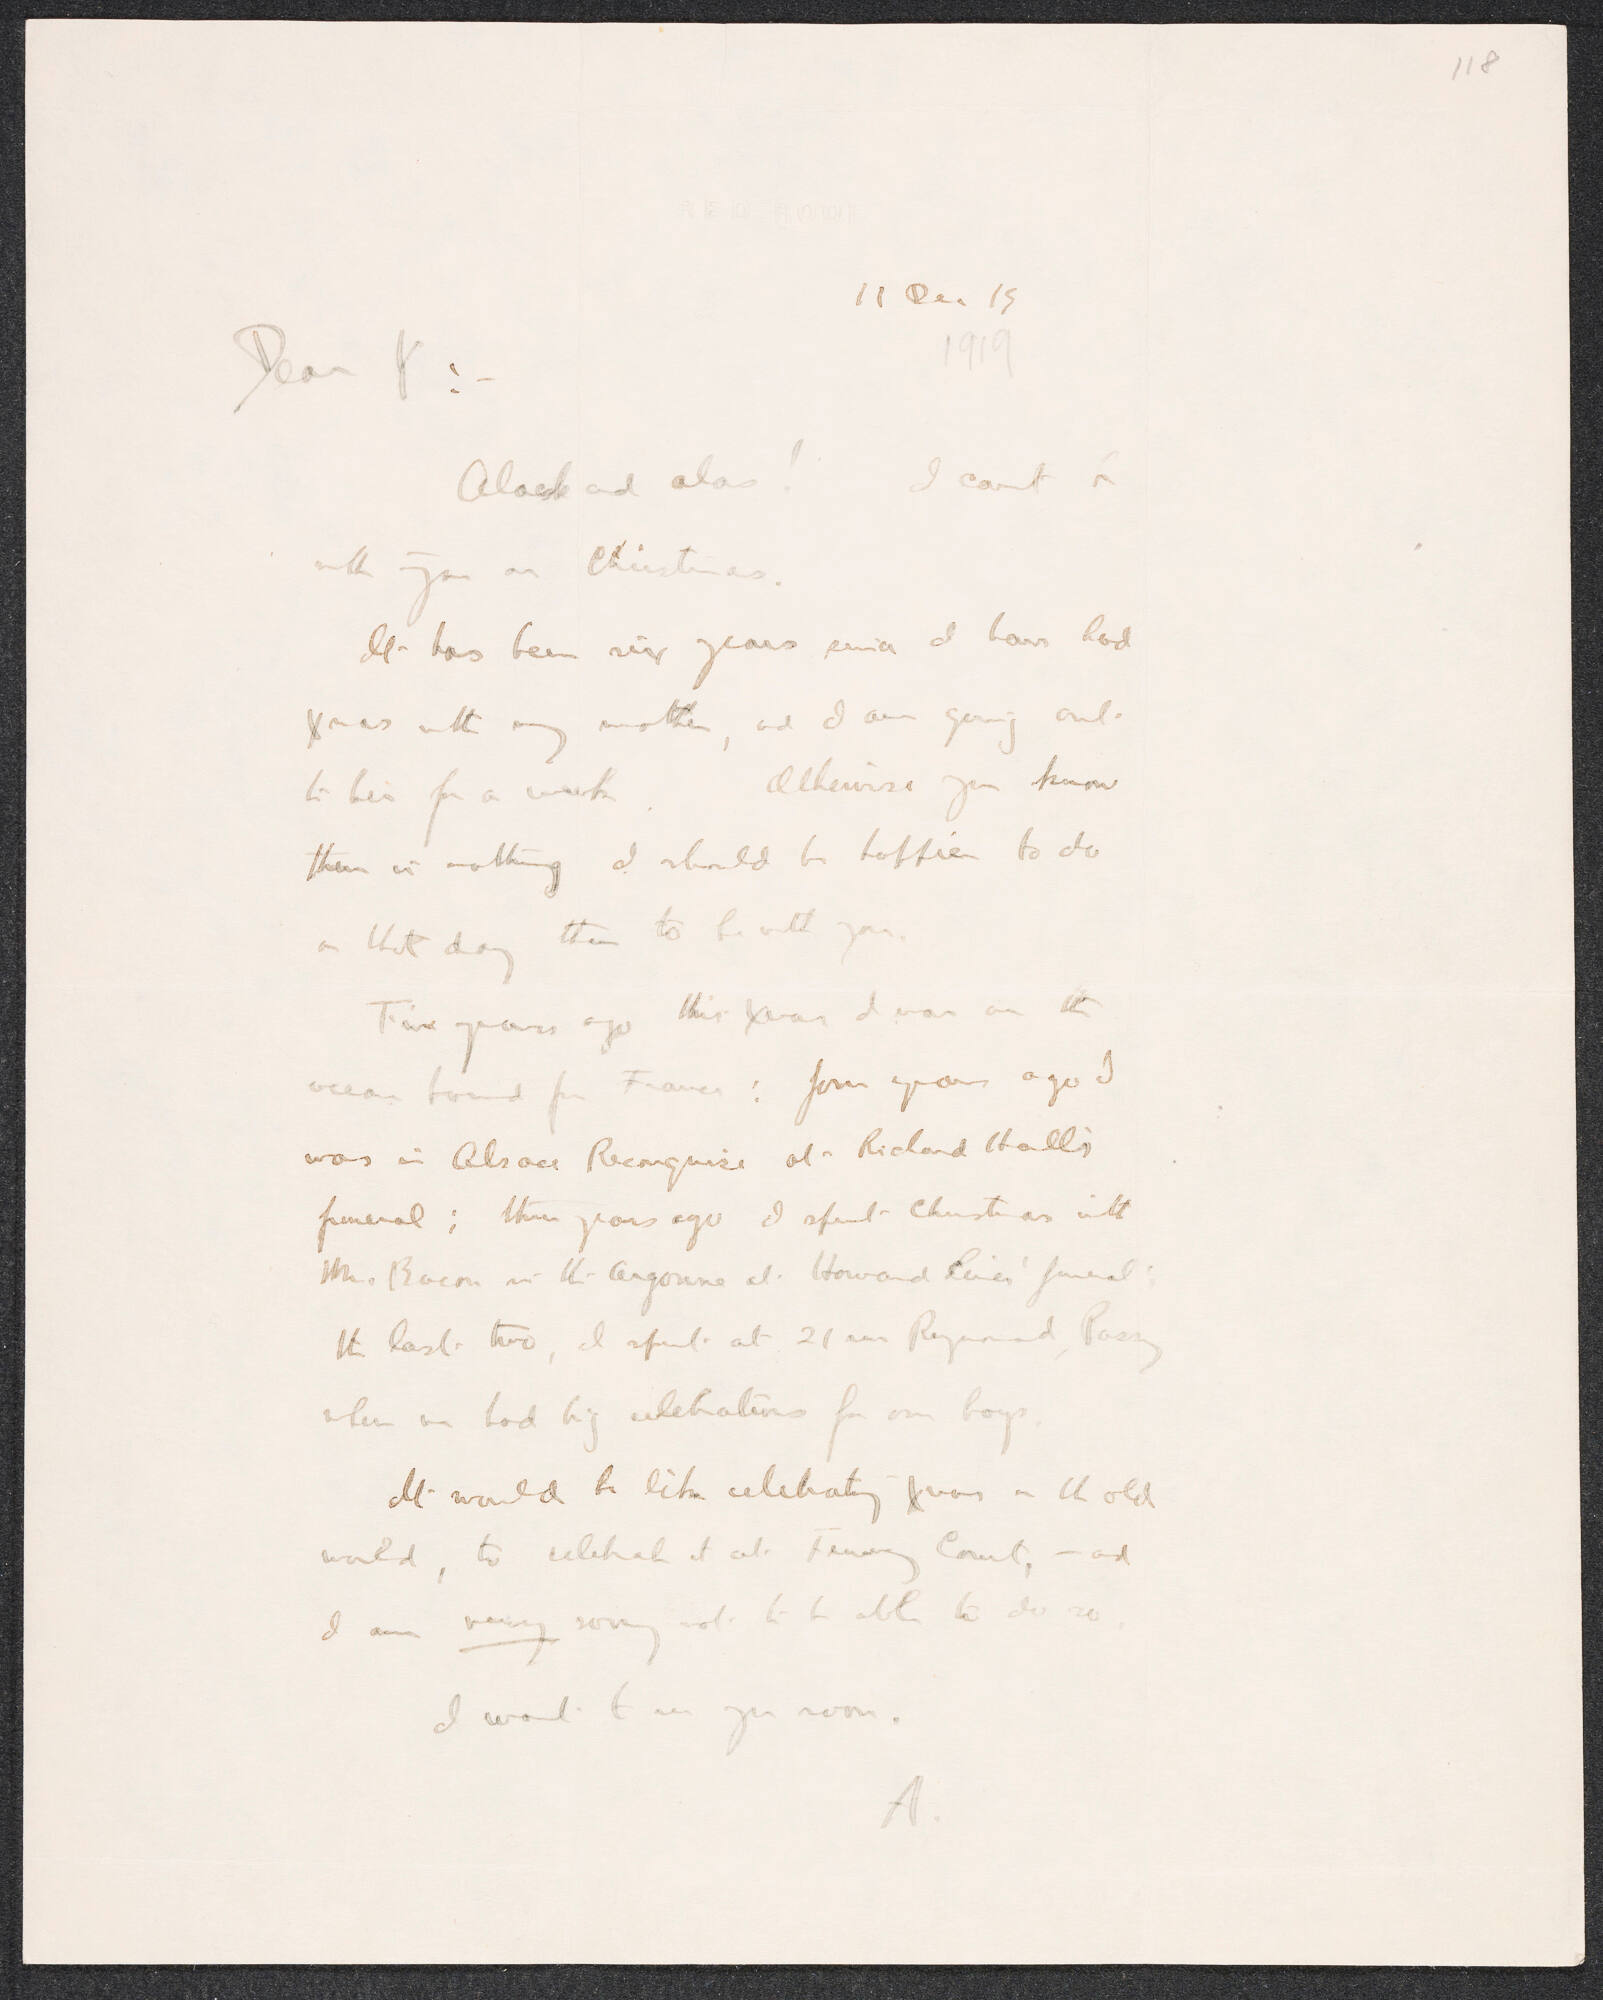 118
11 Dec 19
1919
Dear Y :-
Alack and alas! I can't be
with you on Christmas.
It has been six years since I have had
Xmas with my mother, and I am going out
to her for a week. Otherwise you know
there is nothing I should be happier to do
on that day than to be with you.
Five years ago this Xmas I was on the
ocean bound for France; four years ago I
was in Alsace Reconquise at Richard Hall's
funeral; three years ago I spent Christmas with
Mrs Bacon in the Argonne at Howard Lines' funeral;
the last two, I spent at 21 rue Raynouard, Passy
when we had big celebrations for our boys.
It would be like celebrating Xmas in the old
world, to celebrate it at Fenway Court, – and
I am very sorry not to be able to do so.
I want to see you soon.
A.